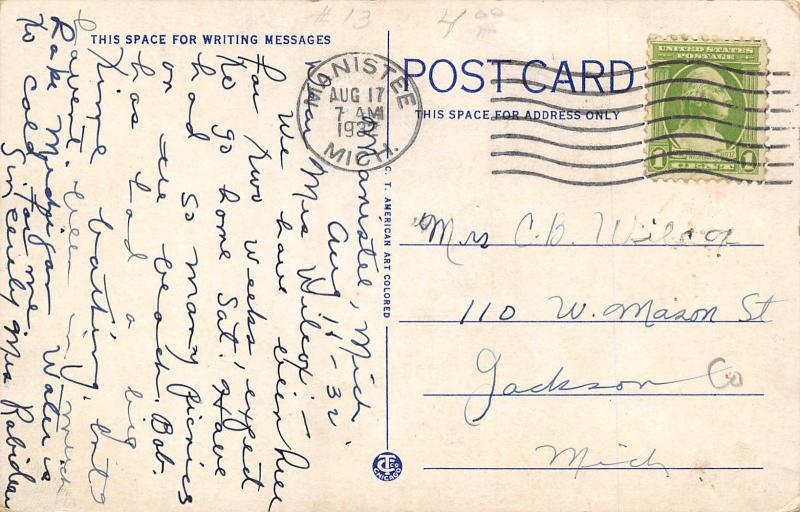 # 13
4.00
THIS SPACE FOR WRITING MESSAGES
POST CARD
THIS SPACE FOR ADDRESS ONLY
MANISTEE
AUG 17
7 AM
1932
MICH.
UNITED STATES
POSTAGE
C. T. AMERICAN ART COLORED
Manistee, Mich.
Aug 15 - 32.
Dear Mrs Wilcox: -
We have been here
for two weeks, expect
to go home Sat. Have
had so many picnics
on the beach. Bob.
has had a big
time bathing, but I
havent been in much
Lake Michigan Water is
to cold for me.
Sincerely Mrs Rabideau
Mrs C. B. Wilcox
110 W. Mason St
Jackson Co
Mich
CHICAGO